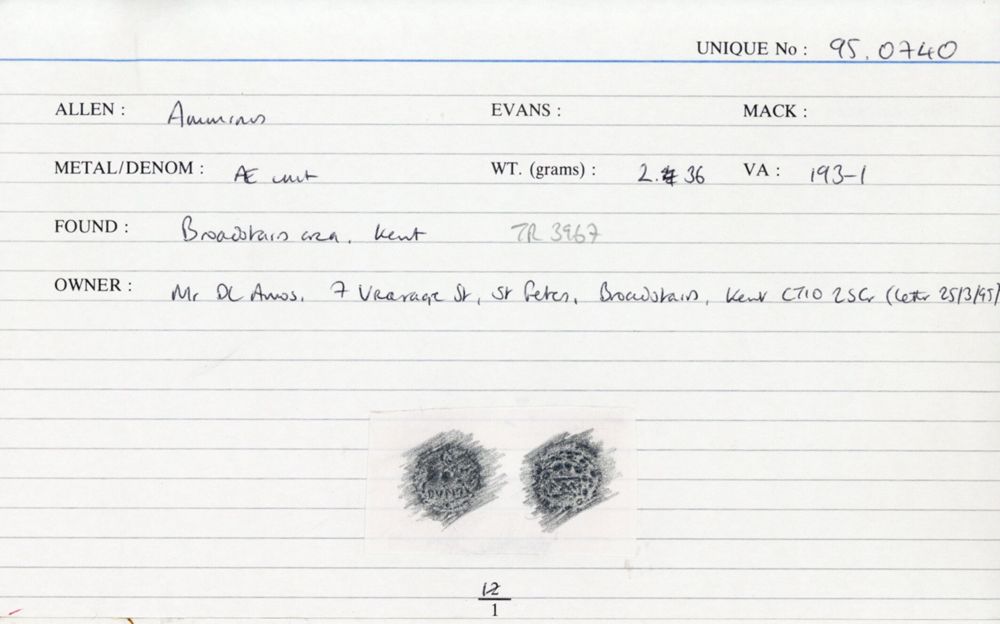 UNIQUE No : 95.0740
ALLEN : Amminus EVANS : MACK :
METAL/DENOM : Æ unit WT. (grams) : 2.36 VA : 193-1
FOUND : Broadstairs area, Kent TR 3967
OWNER : Mr DC Amos, 7 Vicarage St, St Peters, Broadstairs, Kent CT10 2SG (letter 25/3/95)
12
1